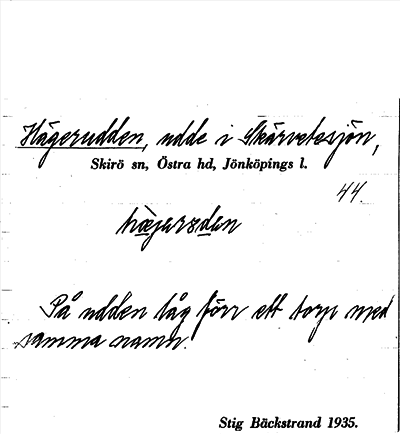 Hägerudden, udde i Skärvetesjön,
Skirö sn, Östra hd, Jönköpings l.
44.
hæ̀garədən
På udden låg förr ett torp med
samma namn.
Stig Bäckstrand 1935.